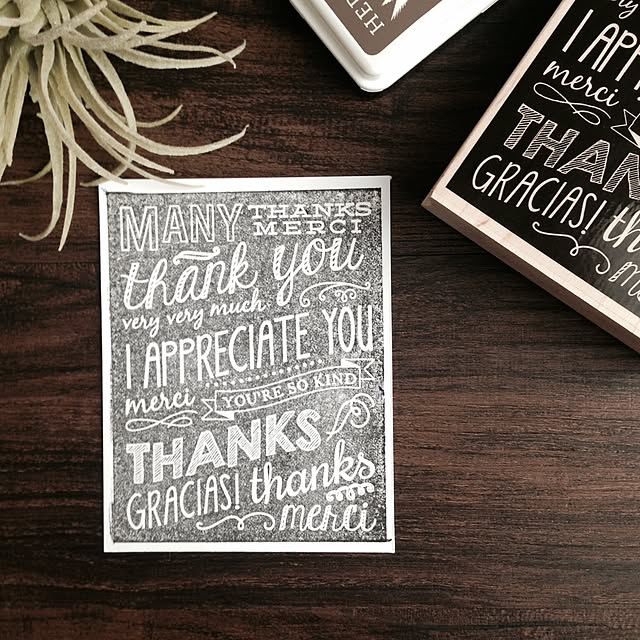 MANY THANKS
MERCI
thank you
very very much
I APPRECIATE YOU
merci YOU'RE SO KIND
THANKS
GRACIAS! thanks
merci
HER
I AP
merci
THAN
GRACIAS! th